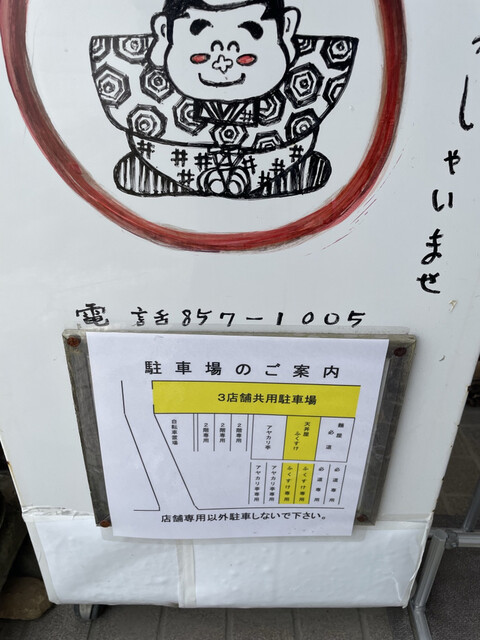 っしゃいませ
電話857-1005
駐車場のご案内
3店舗共用駐車場
自転車置場
2階専用
2階専用
2階専用
アヤカリ亭
天丼屋
ふくすけ
麺屋
必道
アヤカリ亭専用
アヤカリ亭専用
ふくすけ専用
ふくすけ専用
必道専用
必道専用
店舗専用以外駐車しないで下さい。